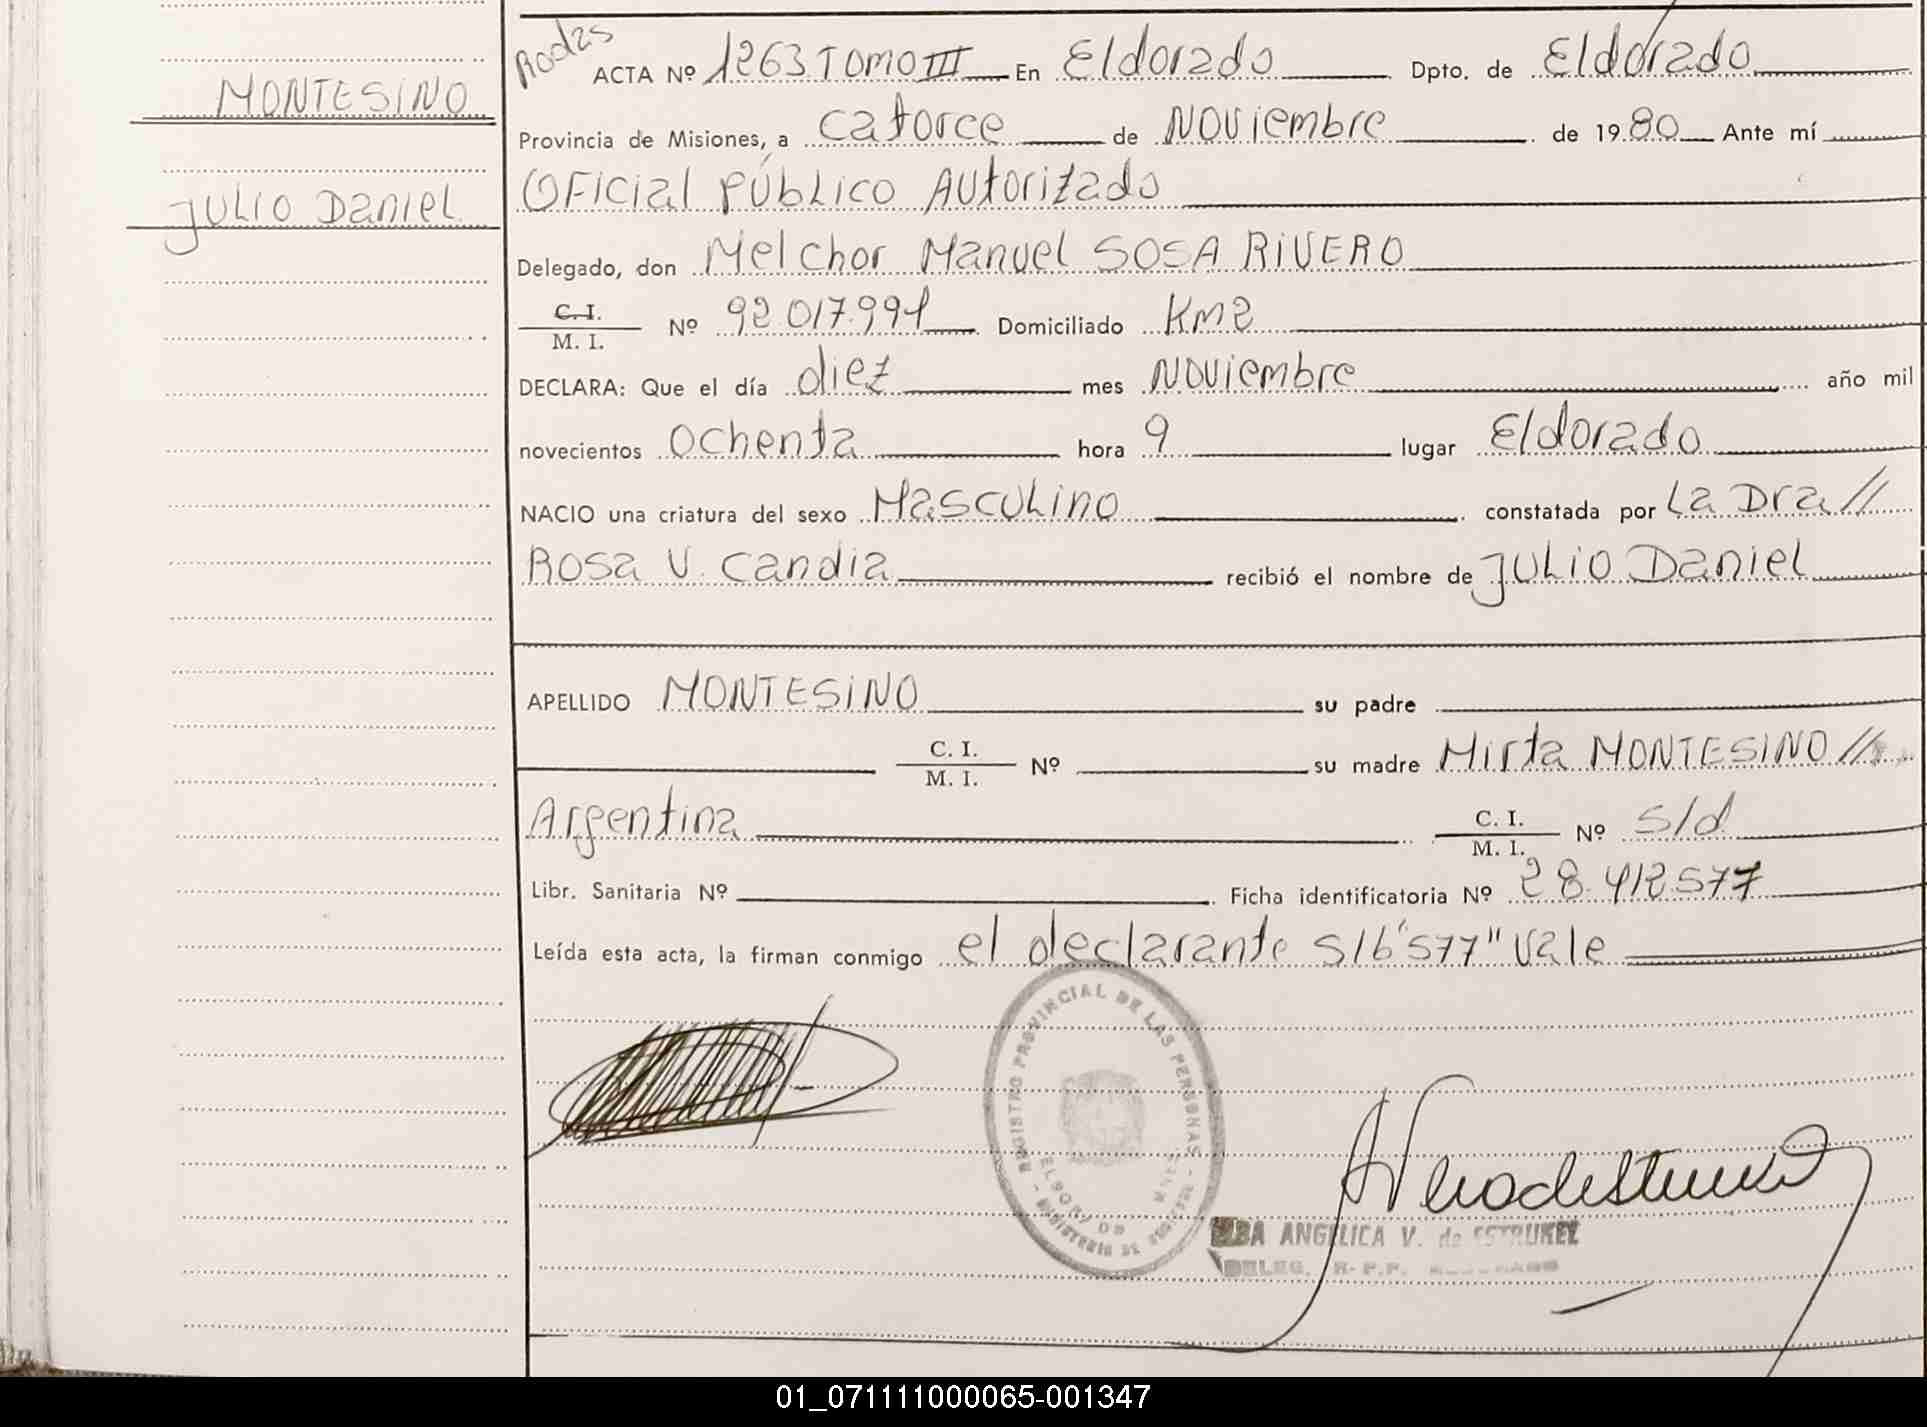 MONTESINO
JULIO Daniel
Rodas
ACTA Nº 1263 TOMO III En Eldorado Dpto. de Eldorado
Provincia de Misiones, a catorce de Noviembre de 1980 Ante mí
OFicial PÚBLICO Autorizado
Delegado, don Melchor Manuel SOSA RIVERO
C. I.
M. I. Nº 92.017.991 Domiciliado Km2
DECLARA: Que el día diez mes Noviembre año mil
novecientos ochenta hora 9 lugar Eldorado
NACIO una criatura del sexo Masculino constatada por La Dra //
Rosa V. Candia recibió el nombre de JULIO Daniel
APELLIDO MONTESINO su padre
C. I.
M. I. Nº su madre Mirta MONTESINO //
Argentina C. I.
M. I. Nº s/d
Libr. Sanitaria Nº Ficha identificatoria Nº 28.412.577
Leída esta acta, la firman conmigo el declarante S/b "577" Vale
REGISTRO PROVINCIAL DE LAS PERSONAS
ELDORADO
MINISTERIO DE
ELBA ANGELICA V. de ESTRUKEL
DELEG. R. P. P.
01_071111000065-001347